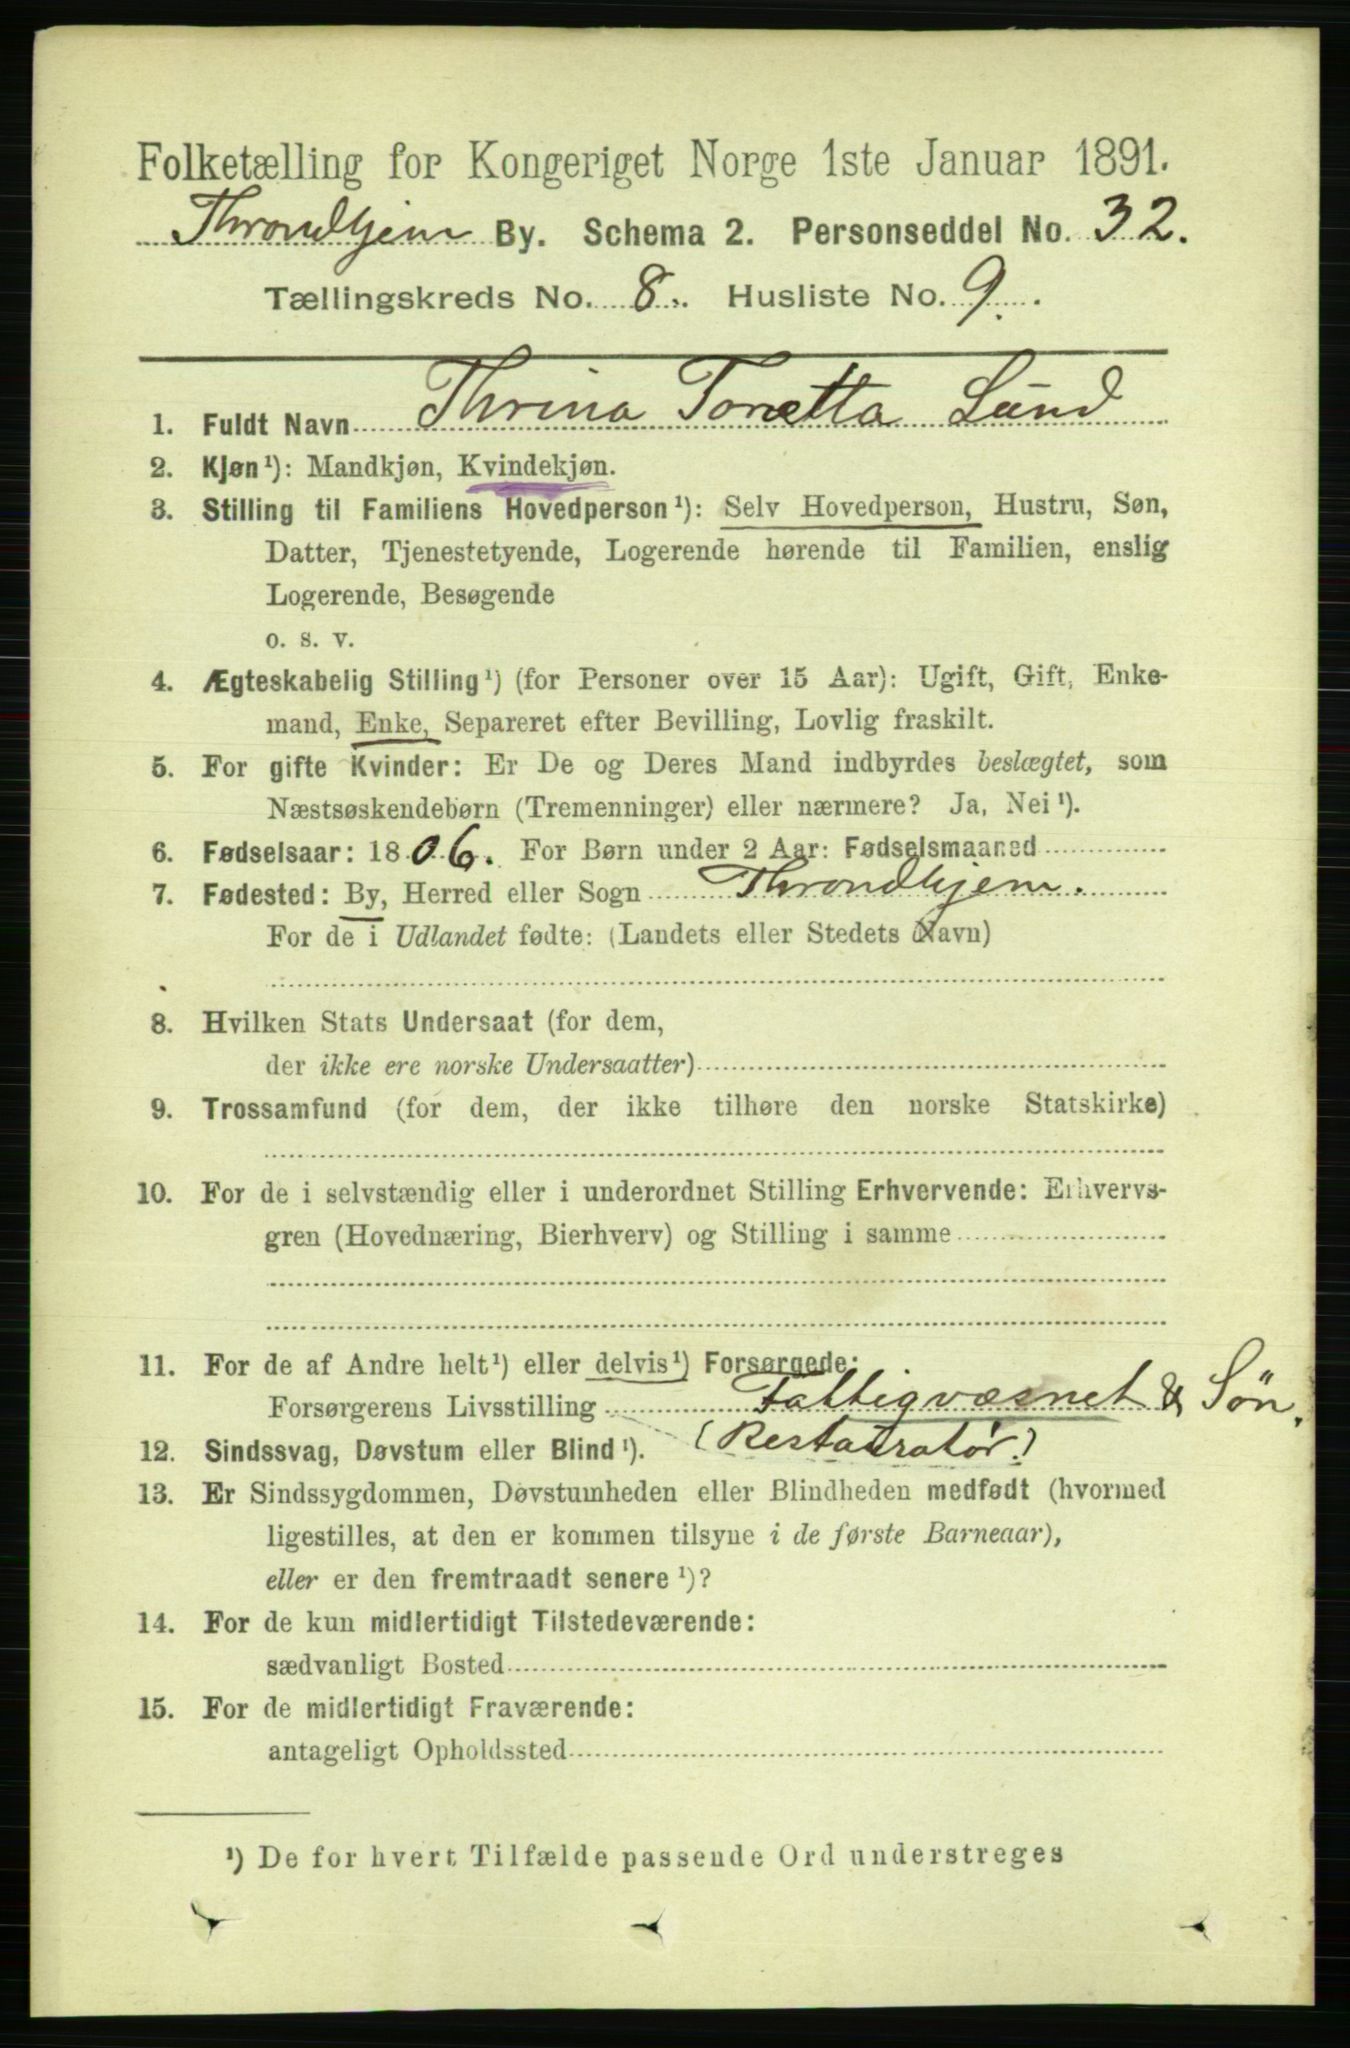 Folketælling for Kongeriget Norge 1ste Januar 1891.
Throndhjem By. Schema 2. Personseddel No. 32.
Tællingskreds No. 8. Husliste No. 9.
1. Fuldt Navn Thrina Toretta Lund
2. Kjøn¹): Mandkjøn, Kvindekjøn.
3. Stilling til Familiens Hovedperson¹): Selv Hovedperson, Hustru, Søn,
Datter, Tjenestetyende, Logerende hørende til Familien, enslig
Logerende, Besøgende
o. s. v.
4. Ægteskabelig Stilling¹) (for Personer over 15 Aar): Ugift, Gift, Enke-
mand, Enke, Separeret efter Bevilling, Lovlig fraskilt.
5. For gifte Kvinder: Er De og Deres Mand indbyrdes beslægtet, som
Næstsøskendebørn (Tremenninger) eller nærmere? Ja, Nei¹).
6. Fødselsaar: 1806. For Børn under 2 Aar: Fødselsmaaned
7. Fødested: By, Herred eller Sogn Throndhjem.
For de i Udlandet fødte: (Landets eller Stedets Navn)
8. Hvilken Stats Undersaat (for dem,
der ikke ere norske Undersaatter)
9. Trossamfund (for dem, der ikke tilhøre den norske Statskirke)
10. For de i selvstændig eller i underordnet Stilling Erhvervende: Erhvervs-
gren (Hovednæring, Bierhverv) og Stilling i samme
11. For de af Andre helt¹) eller delvis¹) Forsørgede:
Forsørgerens Livsstilling Fattigvæsnet & Søn.
(Restauratør)
12. Sindssvag, Døvstum eller Blind¹).
13. Er Sindssygdommen, Døvstumheden eller Blindheden medfødt (hvormed
ligestilles, at den er kommen tilsyne i de første Barneaar),
eller er den fremtraadt senere¹)?
14. For de kun midlertidigt Tilstedeværende:
sædvanligt Bosted
15. For de midlertidigt Fraværende:
antageligt Opholdssted
¹) De for hvert Tilfælde passende Ord understreges